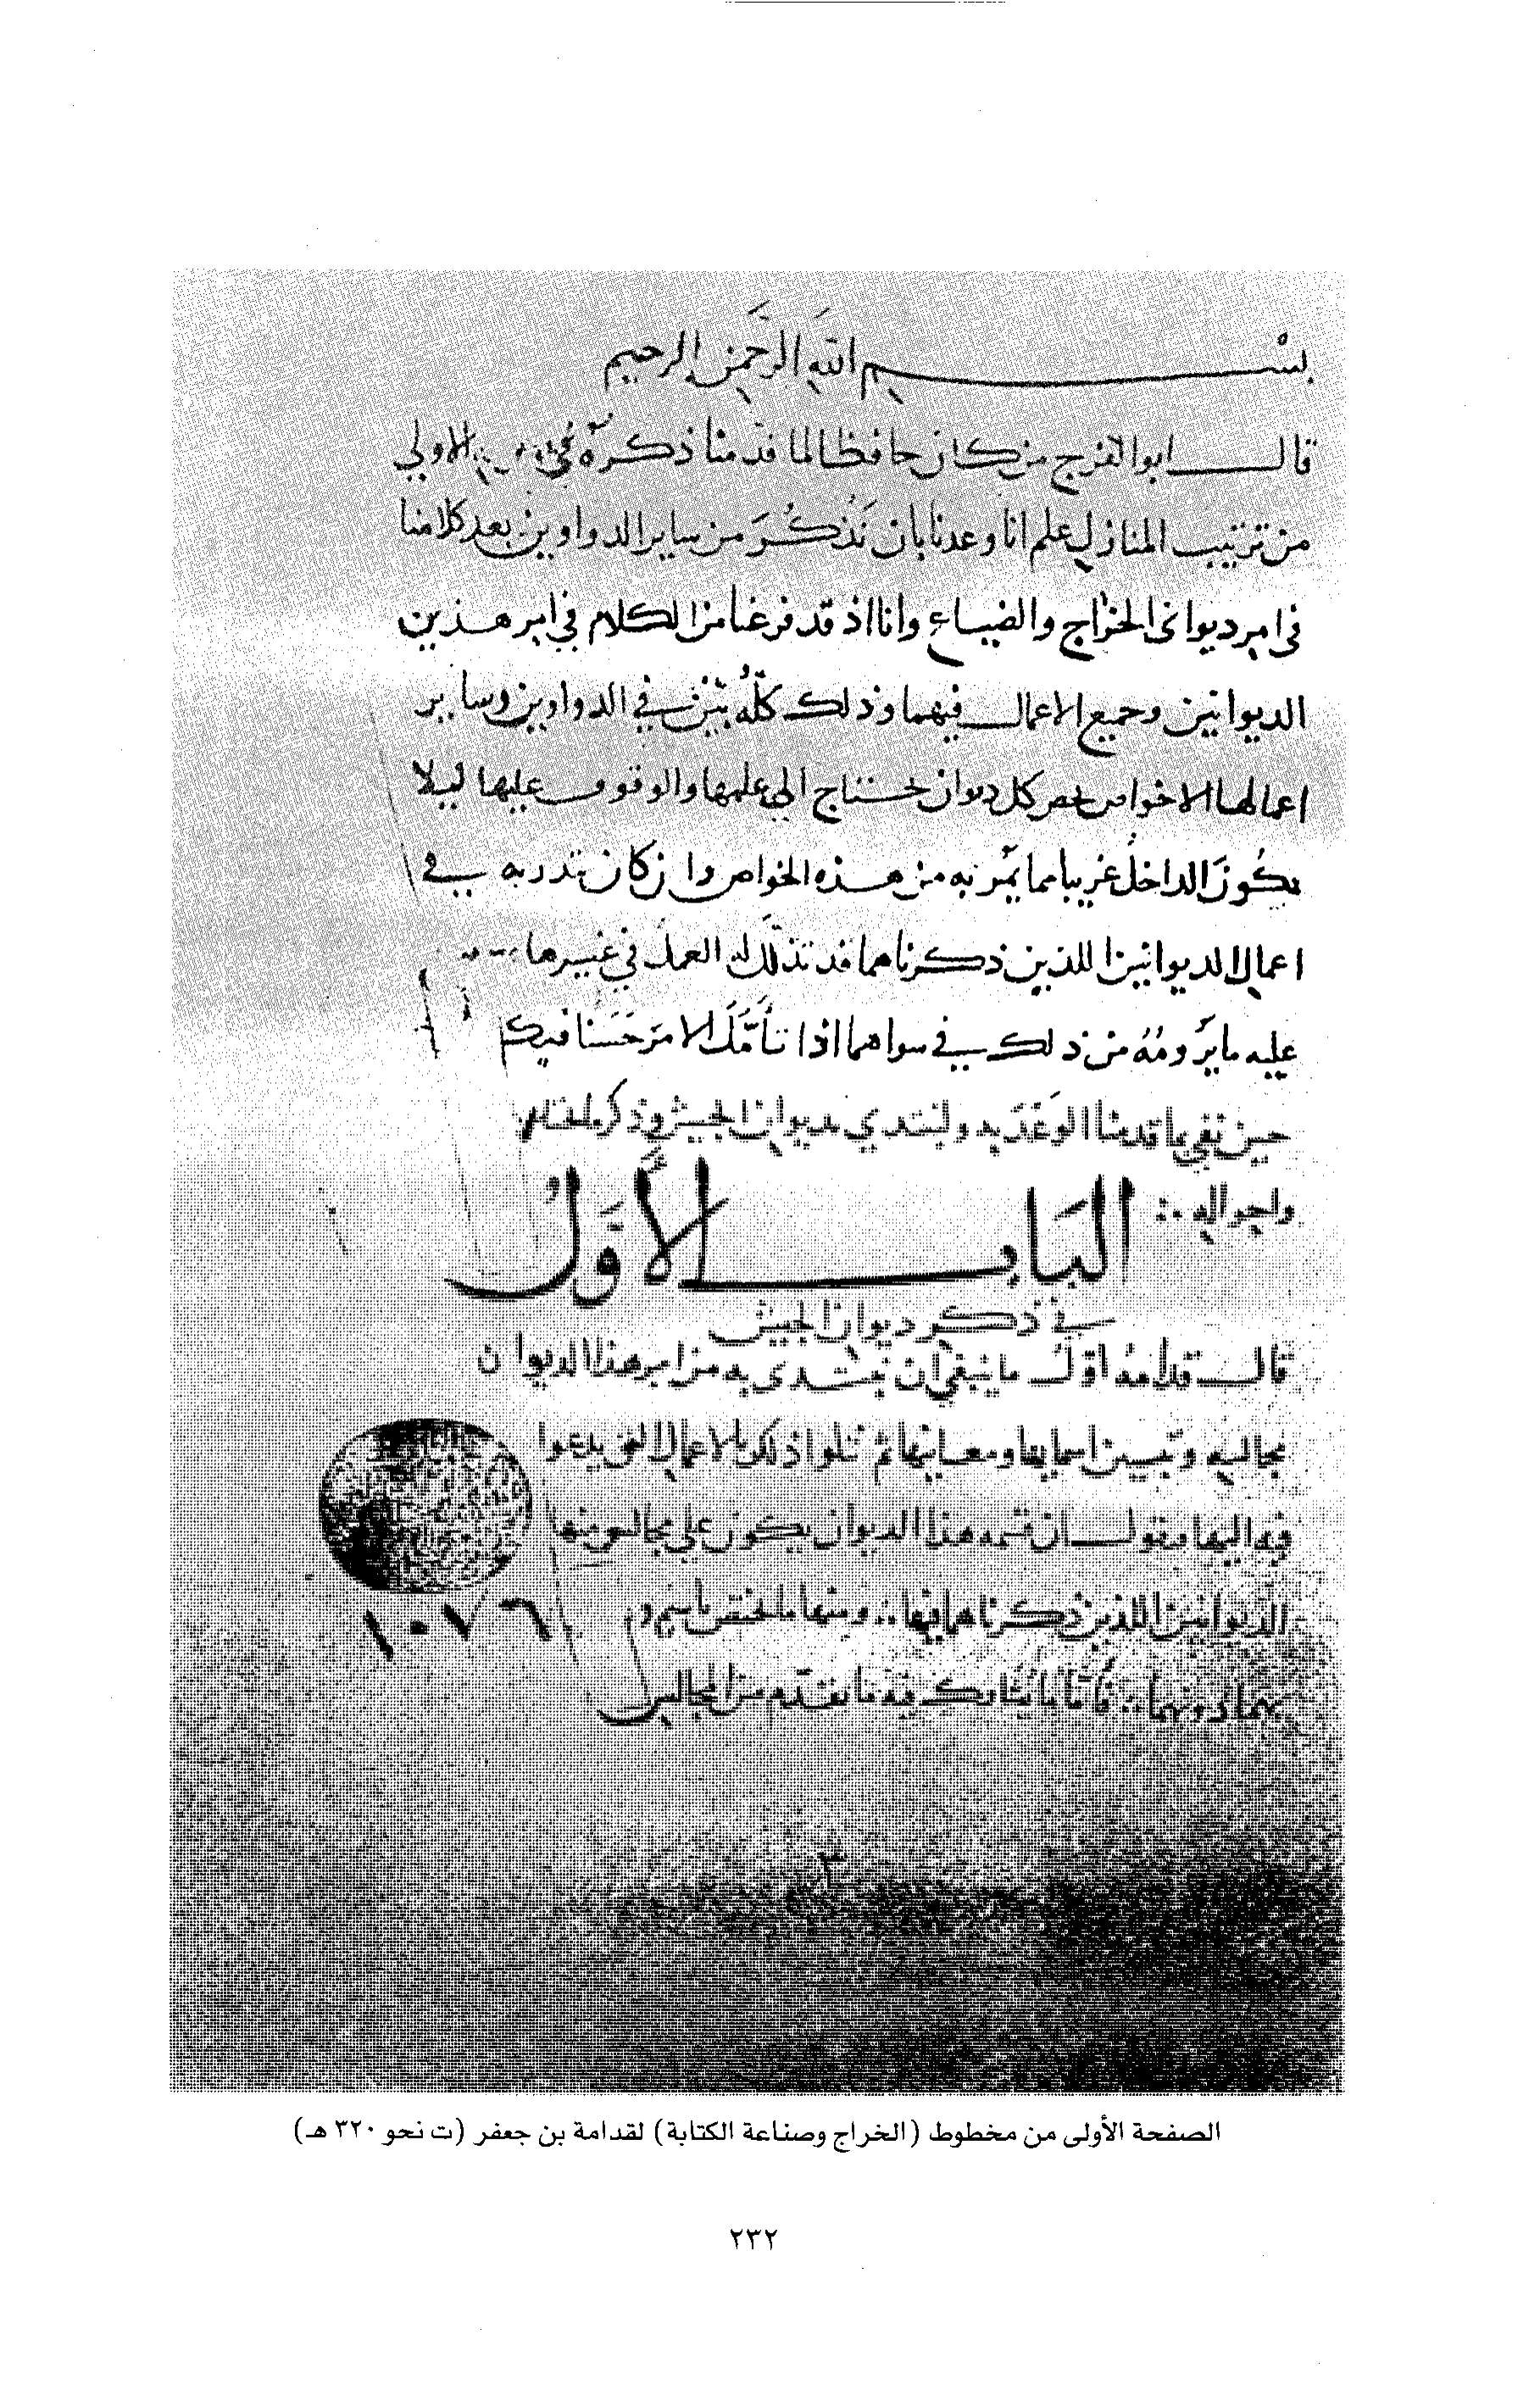 بسم الله الرحمن الرحيم
قال ابو الفرج من كان حافظا لما قدمنا ذكره في الاولى
من ترتيب المنازل علم انا وعدنا بان نذكر من ساير الدواوين بعد كلامنا
في امر ديواني الخراج والضياع وانا اذ قد فرغنا من الكلام في امر هذين
الديوانين وجميع الاعمال فيهما وذلك كله بين في الدواوين وساير
اعمالها الا خواص تخص كل ديوان نحتاج الى علمها والوقوف عليها ليلا
يكون الداخل غريبا مما يمر به من هذه الخواص وان كان تدربه في
اعمال الديوانين اللذين ذكرناهما قد تذلل له العمل في غيرهما
عليه ما يرومه من ذلك في سواهما اذا تأمل الامر حسنا
حين نفي بما قدمنا الوعد به ولنبتدي بديوان الجيش وذكر
واحواله
الباب الأول
في ذكر ديوان الجيش
قال قدامه اول ما ينبغي ان نبتدى به من امر هذا الديوان
مجالسه وتبيين اسمايها ومعانيها ثم نتلوا ذلك بالاعمال التي يدعوا
فيه اليها ونقول ان قسمه هذا الديوان يكون على مجالس منها
الديوانين اللذين ذكرناهما ومنها ما يختص باسم
بهما دونهما فأما ما يشاركه فيه ما تقدم من المجالس
١٠٧٦
٣
الصفحة الأولى من مخطوط (الخراج وصناعة الكتابة) لقدامة بن جعفر (ت نحو ٣٢٠ هـ)
٢٣٢